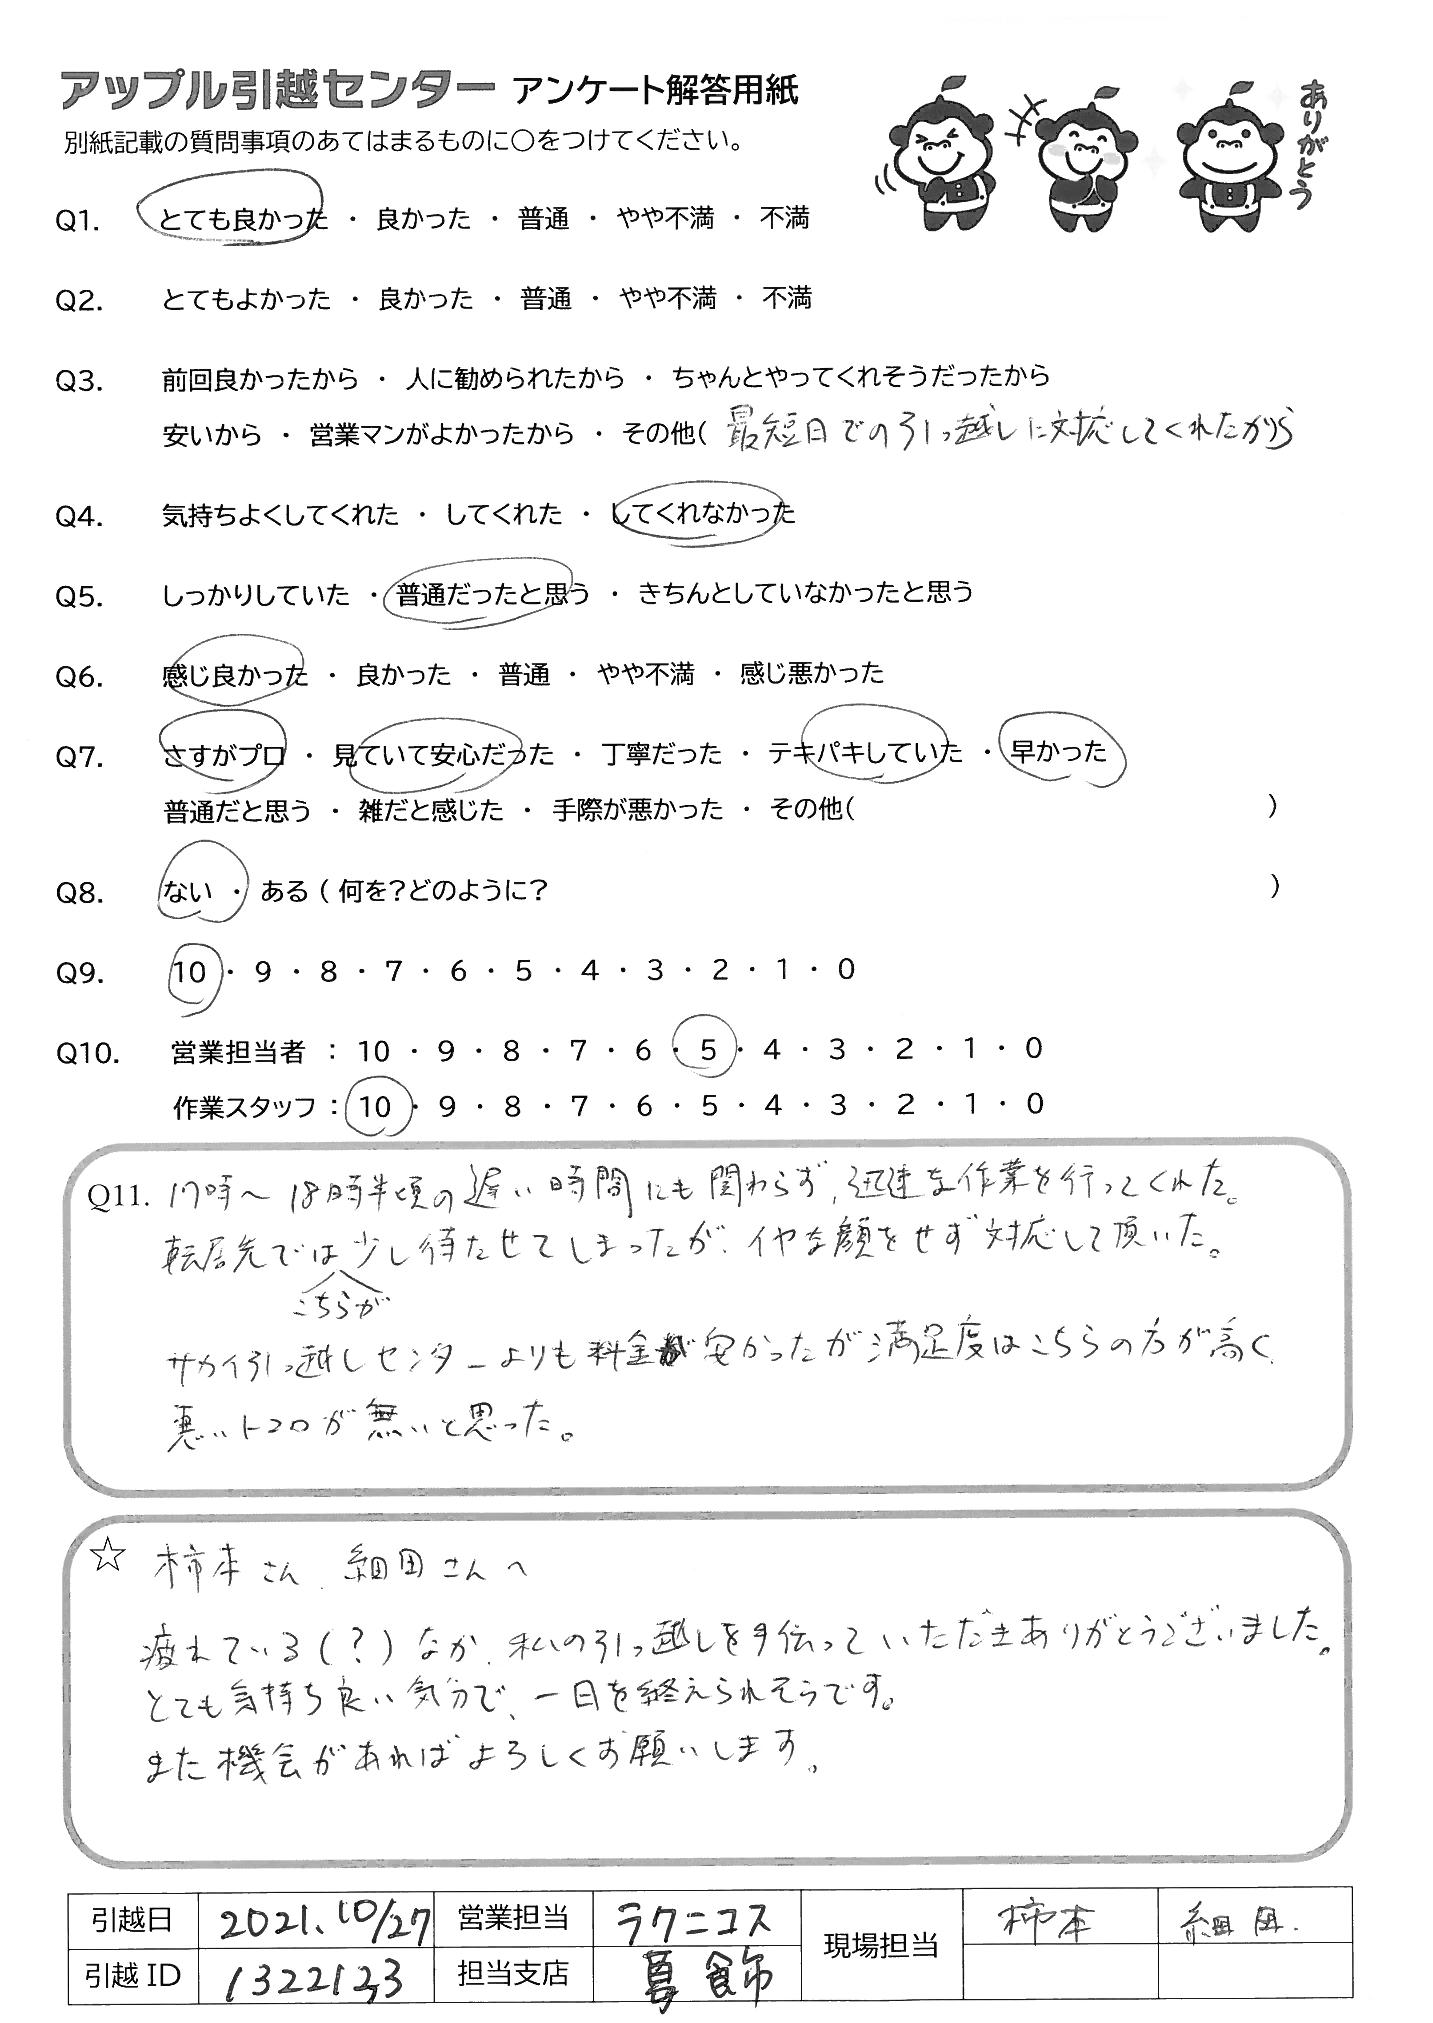 アップル引越センター アンケート解答用紙
ありがとう
別紙記載の質問事項のあてはまるものに○をつけてください。
Q1. とても良かった ・ 良かった ・ 普通 ・ やや不満 ・ 不満
Q2. とてもよかった ・ 良かった ・ 普通 ・ やや不満 ・ 不満
Q3. 前回良かったから ・ 人に勧められたから ・ ちゃんとやってくれそうだったから
安いから ・ 営業マンがよかったから ・ その他( 最短日での引っ越しに対応してくれたから
Q4. 気持ちよくしてくれた ・ してくれた ・ してくれなかった
Q5. しっかりしていた ・ 普通だったと思う ・ きちんとしていなかったと思う
Q6. 感じ良かった ・ 良かった ・ 普通 ・ やや不満 ・ 感じ悪かった
Q7. さすがプロ ・ 見ていて安心だった ・ 丁寧だった ・ テキパキしていた ・ 早かった
普通だと思う ・ 雑だと感じた ・ 手際が悪かった ・ その他( )
Q8. ない ・ ある ( 何を?どのように? )
Q9. 10 ・ 9 ・ 8 ・ 7 ・ 6 ・ 5 ・ 4 ・ 3 ・ 2 ・ 1 ・ 0
Q10. 営業担当者 : 10 ・ 9 ・ 8 ・ 7 ・ 6 ・ 5 ・ 4 ・ 3 ・ 2 ・ 1 ・ 0
作業スタッフ : 10 ・ 9 ・ 8 ・ 7 ・ 6 ・ 5 ・ 4 ・ 3 ・ 2 ・ 1 ・ 0
Q11. 17時〜18時半頃の遅い時間にも関わらず、迅速な作業を行ってくれた。
転居先では少し待たせてしまったが、イヤな顔をせず対応して頂いた。
こちらが
サカイ引っ越しセンターよりも料金が安かったが満足度はこちらの方が高く、
悪いトコロが無いと思った。
☆ 柿本さん、細田さんへ
疲れている(?)なか、私の引っ越しを手伝っていただきありがとうございました。
とても気持ち良い気分で、一日を終えられそうです。
また機会があればよろしくお願いします。
引越日 2021.10/27 営業担当 ラクニコス 現場担当 柿本 細田.
引越ID 1322123 担当支店